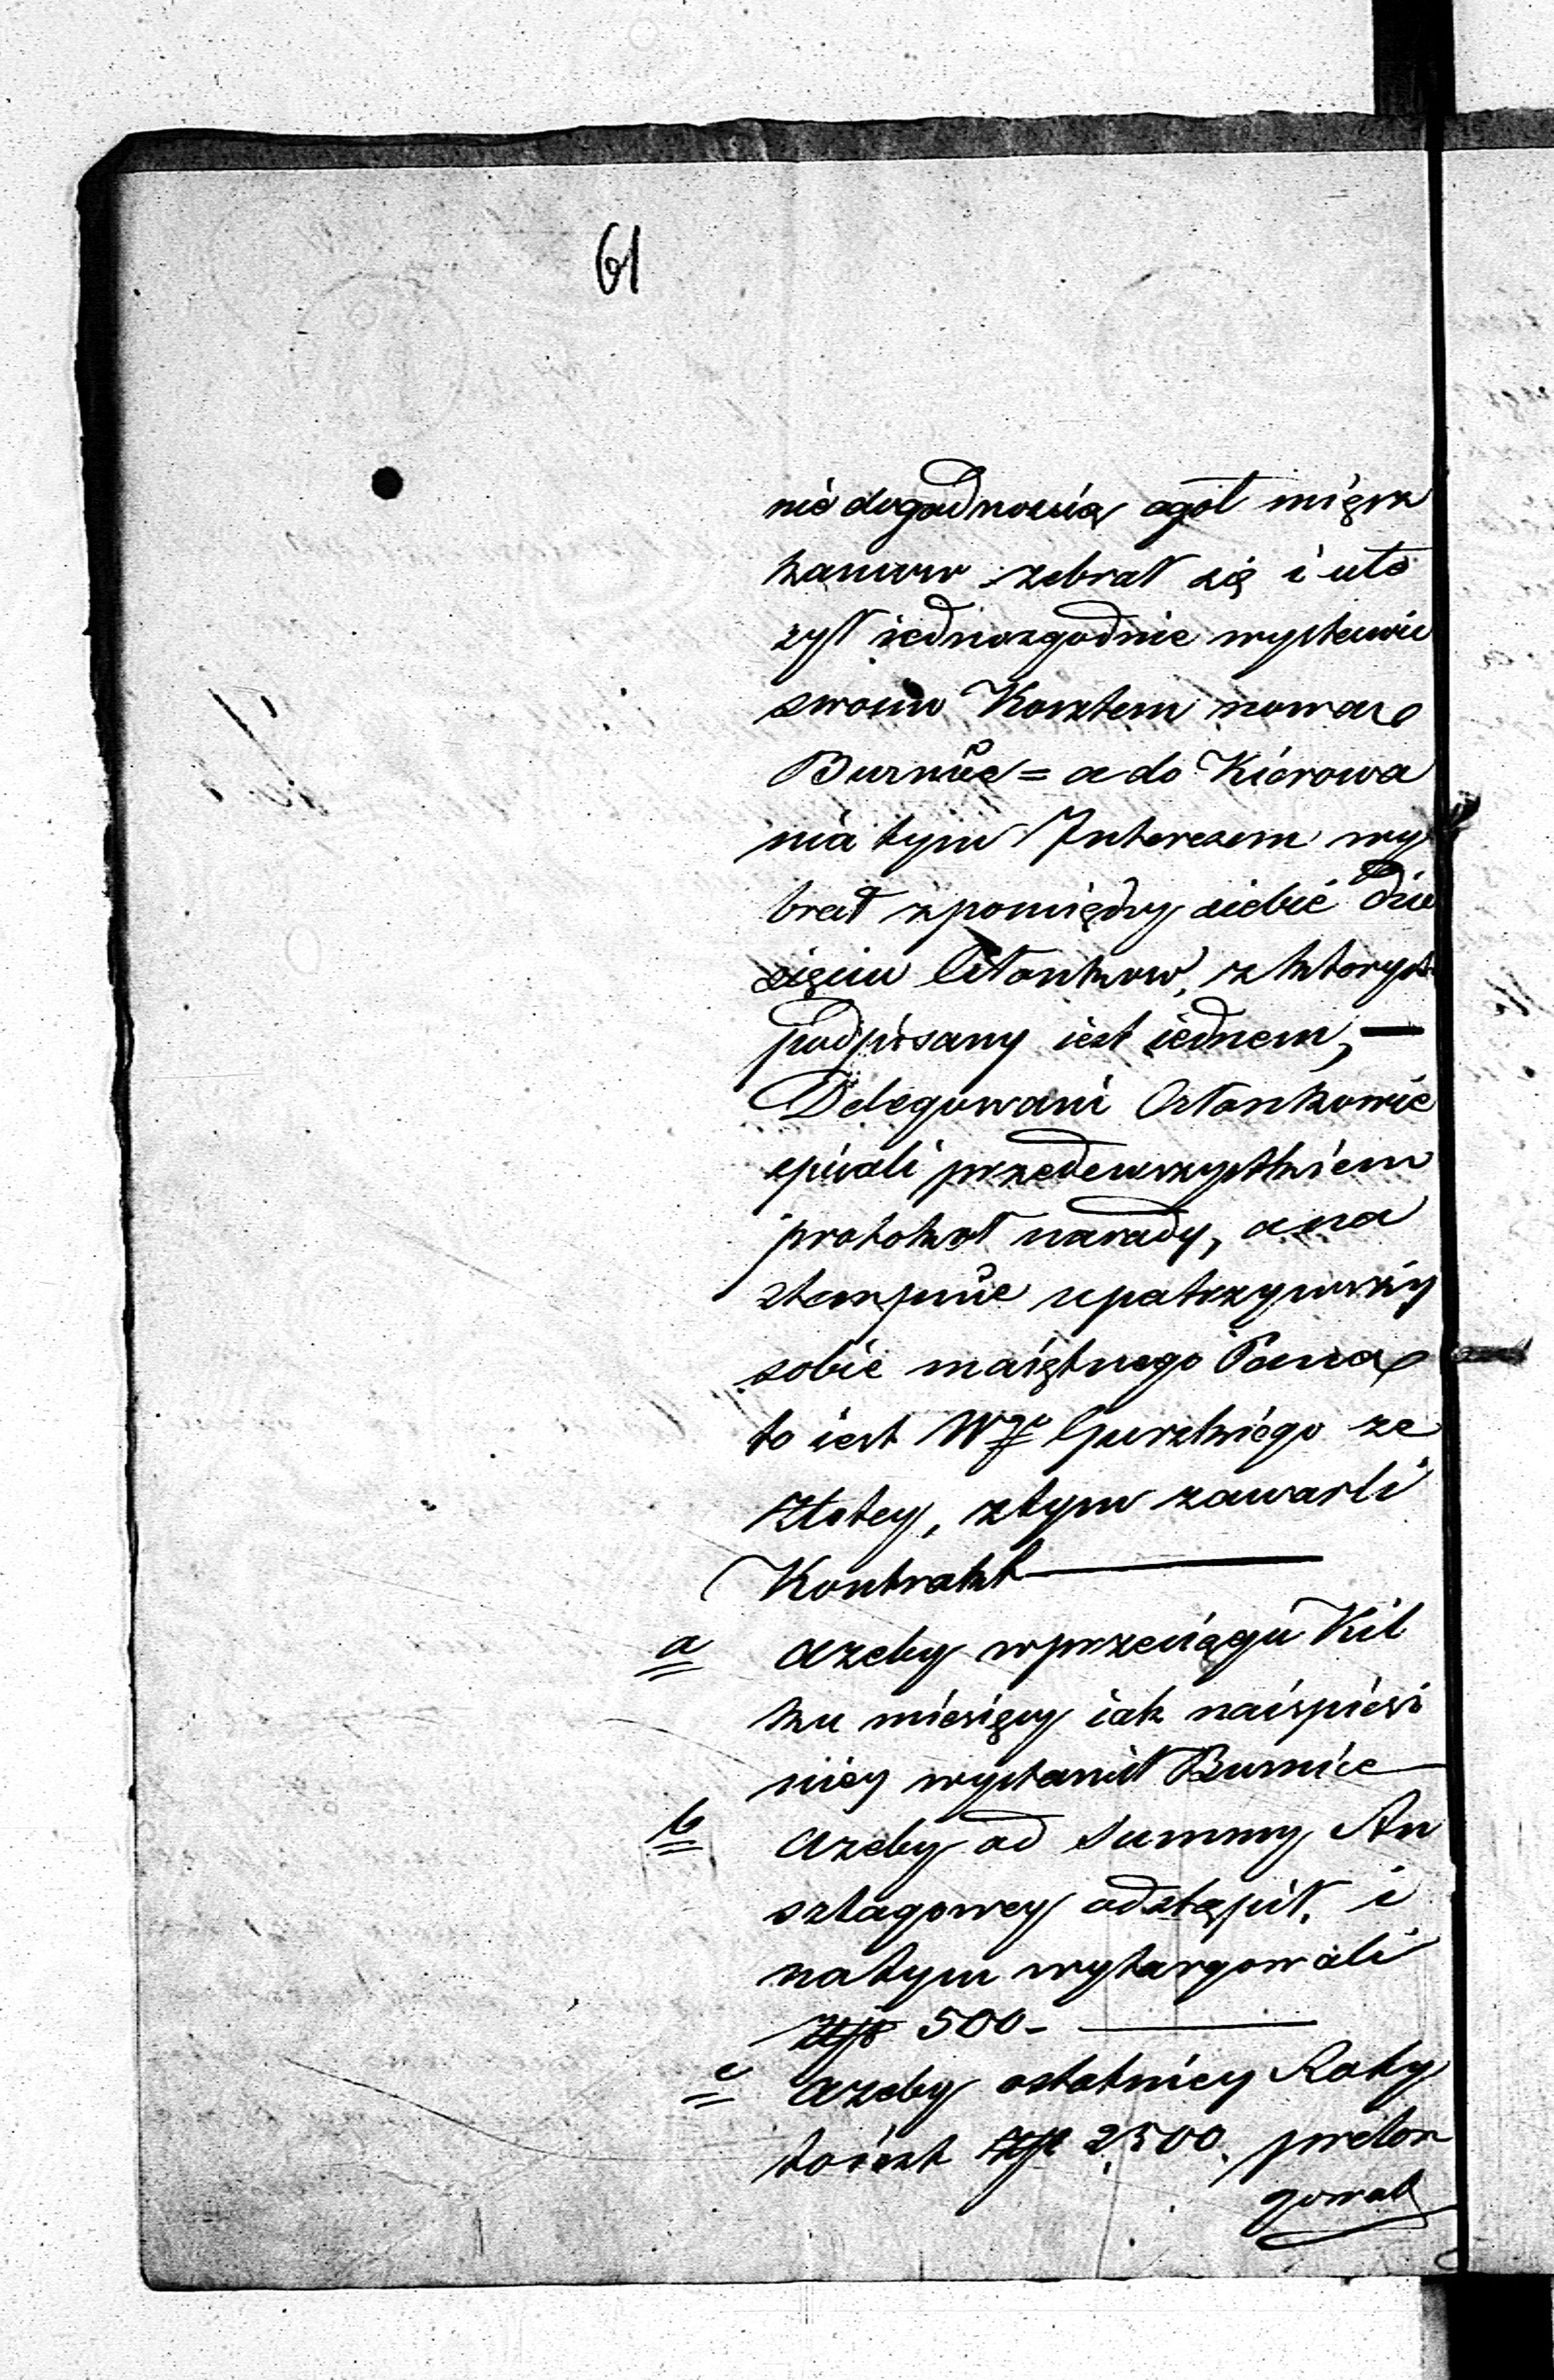 61
niedogodnością ogół mięsz
kancow zebrał się i uło
zył iednozgodnie wystawić
swoim Kosztem nowa
Buznice = a do Kierowa
nia tym Interesem wy
brał zpomiędzy siebie dzie
sięciu Członkow, z ktorych
podpisany iest iednem, —
Delegowani Członkowie
spisali przedewszystkiem
protokuł narady, a na
stempnie upatrzywszy
sobie maiętnego Pana
to iest Wgo Gurskiego ze
Złotey, ztym zawarli
Kontrakt —
a azeby wprzeciągu Kil
ku miesięcy iak naispiesz
niey wystawił Buznice
b azeby od Summy An
szlagowey odstąpił, i
natym wytargowali
Złp 500 - —
c azeby ostatniey Raty
toiest Złp 2,500. prolon
gował